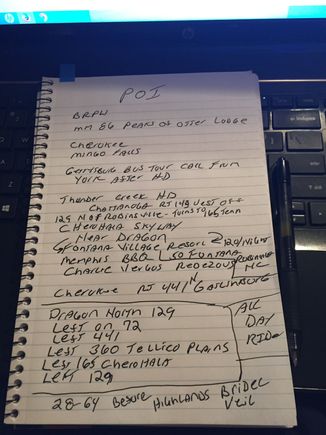 POI
BRPW
mm 86 PEAKS OF OTTER LODGE
CHEROKEE
MINGO FALLS
GETTYSBURG BUS TOUR CALL FROM
YORK AFTER HD
THUNDER CREEK HD
CHATTANOGA RT 149 WEST OFF
129 N OF ROBINSVILLE - TURNS TO 165 TENN
CHEROHALA SKYWAY
NEAR DRAGON
FONTANA VILLAGE RESORT
MEMPHIS BBQ
50 FONTANA
CHARLIE VERGOS REDEZOUS
ROBBINSVILLE
NC
CHEROKEE RT 441 N GATLINBURG
DRAGON NORTH 129
LEFT ON 72
LEFT 441
LEFT 360 TELLICO PLAINS
LEFT 165 CHEROHALA
LEFT 129
ALL
DAY
RIDE
28-64 BEFORE HIGHLANDS BRIDEL
VEIL